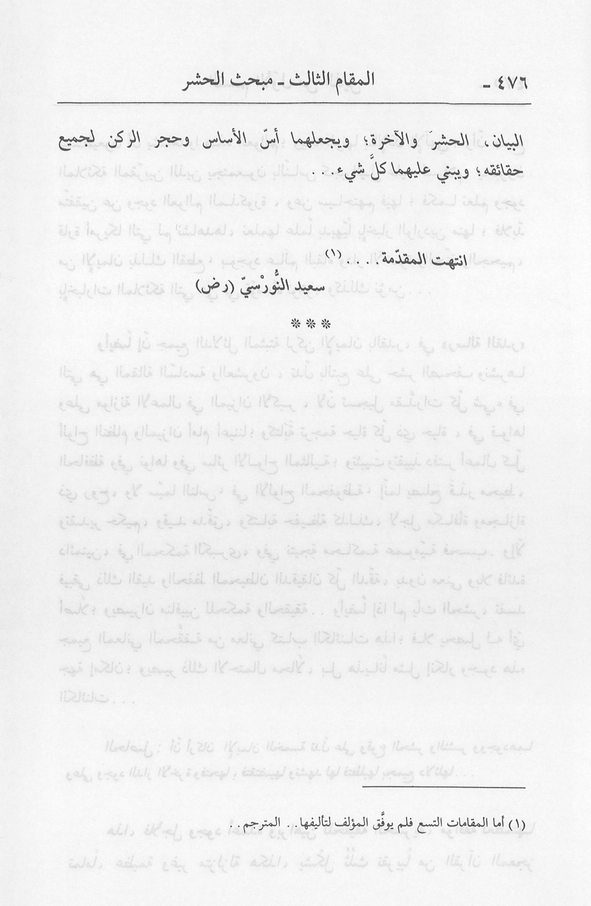 ٤٧٦ - المقام الثالث - مبحث الحشر
البيان، الحشرَ والآخرة؛ ويجعلهما أسّ الأساس وحجر الركن لجميع
حقائقه؛ ويبني عليهما كلَّ شيء...
انتهت المقدّمة.... (١)
سعيد النُّورْسيّ (رض)
***
(١) أما المقامات التسع فلم يوفَّق المؤلف لتأليفها.. المترجم..